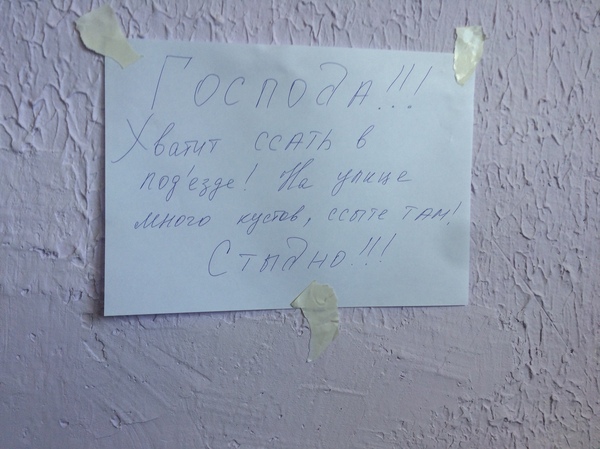 Господа!!!
Хватит ссать в
под'езде! На улице
много кустов, ссыте там!
Стыдно!!!